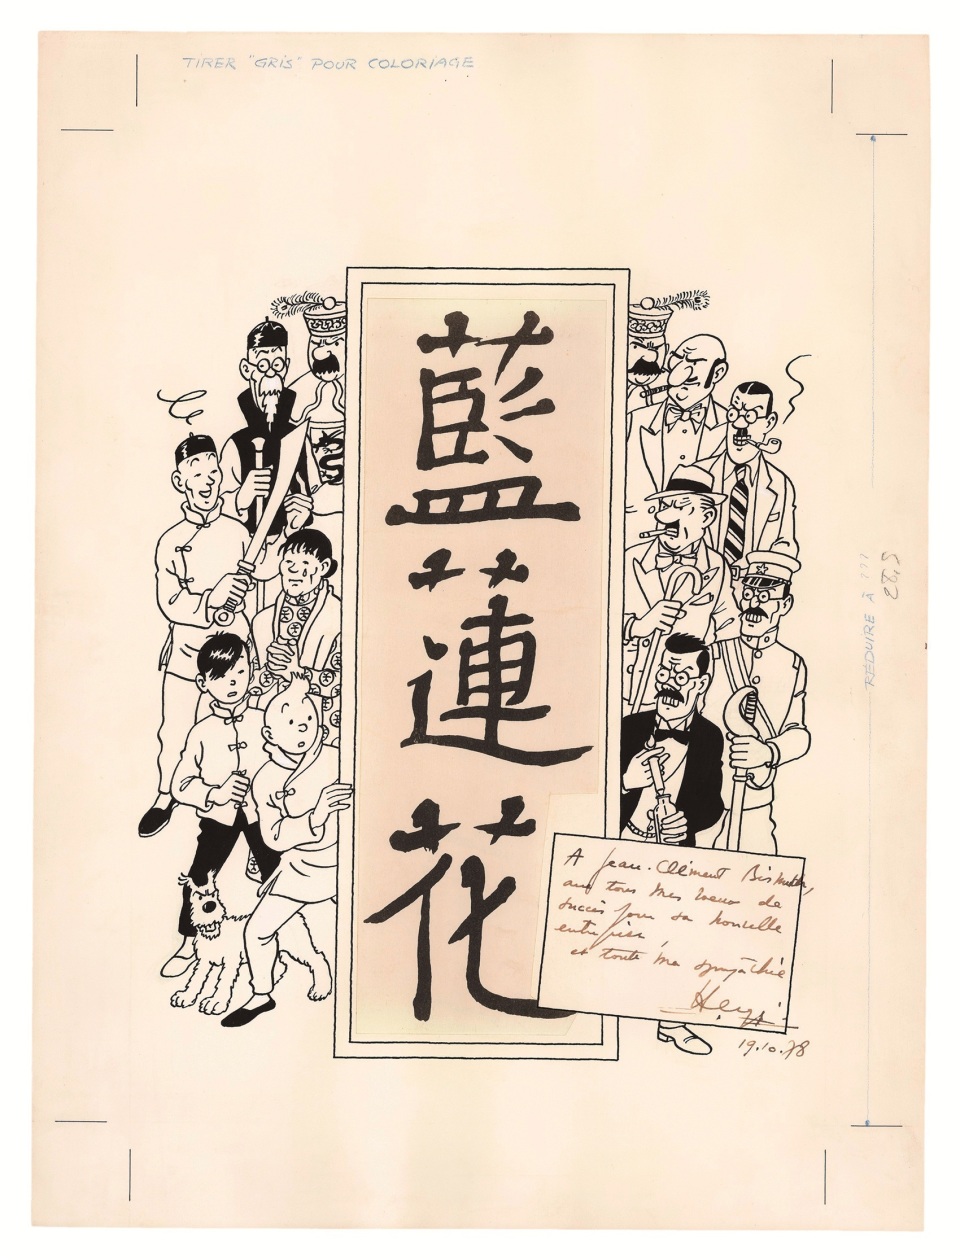 TIRER "GRIS" POUR COLORIAGE
藍蓮花
RÉDUIRE À 777
A Jean-Clément
avec tous mes vœux de
succès pour sa nouvelle
entreprise,
et toute ma sympathie
Hergé
19.10.78